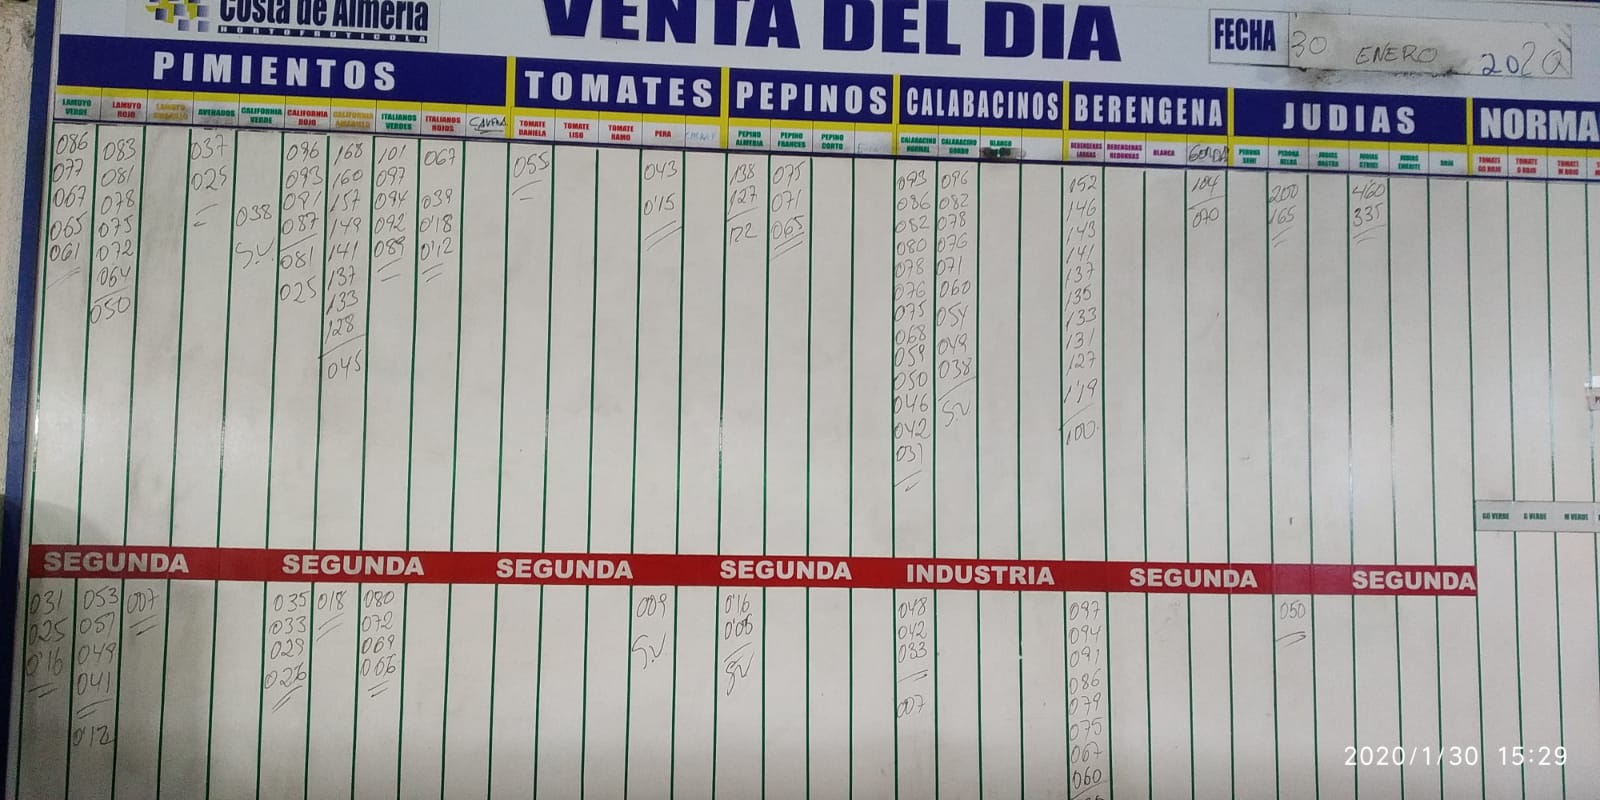 Costa de Almería
HORTOFRUTICOLA
VENTA DEL DIA
FECHA 30 ENERO 2020
PIMIENTOS TOMATES PEPINOS CALABACINOS BERENGENA JUDIAS NORMA
LAMUYO VERDE LAMUYO ROJO LAMUYO AMARILLO AVENADOS CALIFORNIA VERDE CALIFORNIA ROJO CALIFORNIA AMARILLO ITALIANOS VERDES ITALIANOS ROJOS TOMATE DANIELA TOMATE LISO TOMATE RAMO PERA PEPINO ALMERIA PEPINO FRANCES PEPINO CORTO CALABACINO NORMAL CALABACINO GORDO BLANCO BERENGENAS LARGAS BERENGENAS REDONDAS BLANCA GORDA PERONA SEMI PERONA ROJA JUDIAS RASTRA JUDIAS STRIKE JUDIAS EMERITE BOBI TOMATE GG ROJO TOMATE G ROJO TOMATE M ROJO
086 083 037 096 168 101 067 055 043 138 075 093 096 152 104 200 460
077 081 025 093 160 097 039 0'15 127 071 086 082 146 070 165 335
067 078 038 091 157 094 0'18 122 065 082 078 143
065 075 S.V. 087 149 092 0'12 080 076 141
061 072 081 141 089 078 071 137
064 025 137 076 060 135
050 133 075 054 133
128 068 049 131
045 059 038 127
050 SV 1'19
046 100
042
037
GG VERDE G VERDE M VERDE
SEGUNDA SEGUNDA SEGUNDA SEGUNDA INDUSTRIA SEGUNDA SEGUNDA
031 053 007 035 018 080 009 0'16 048 097 050
025 051 033 072 S.V 0'06 042 094
0'16 049 029 069 SV 033 091
041 026 066 007 086
0'12 079
075
067
060
2020/1/30 15:29